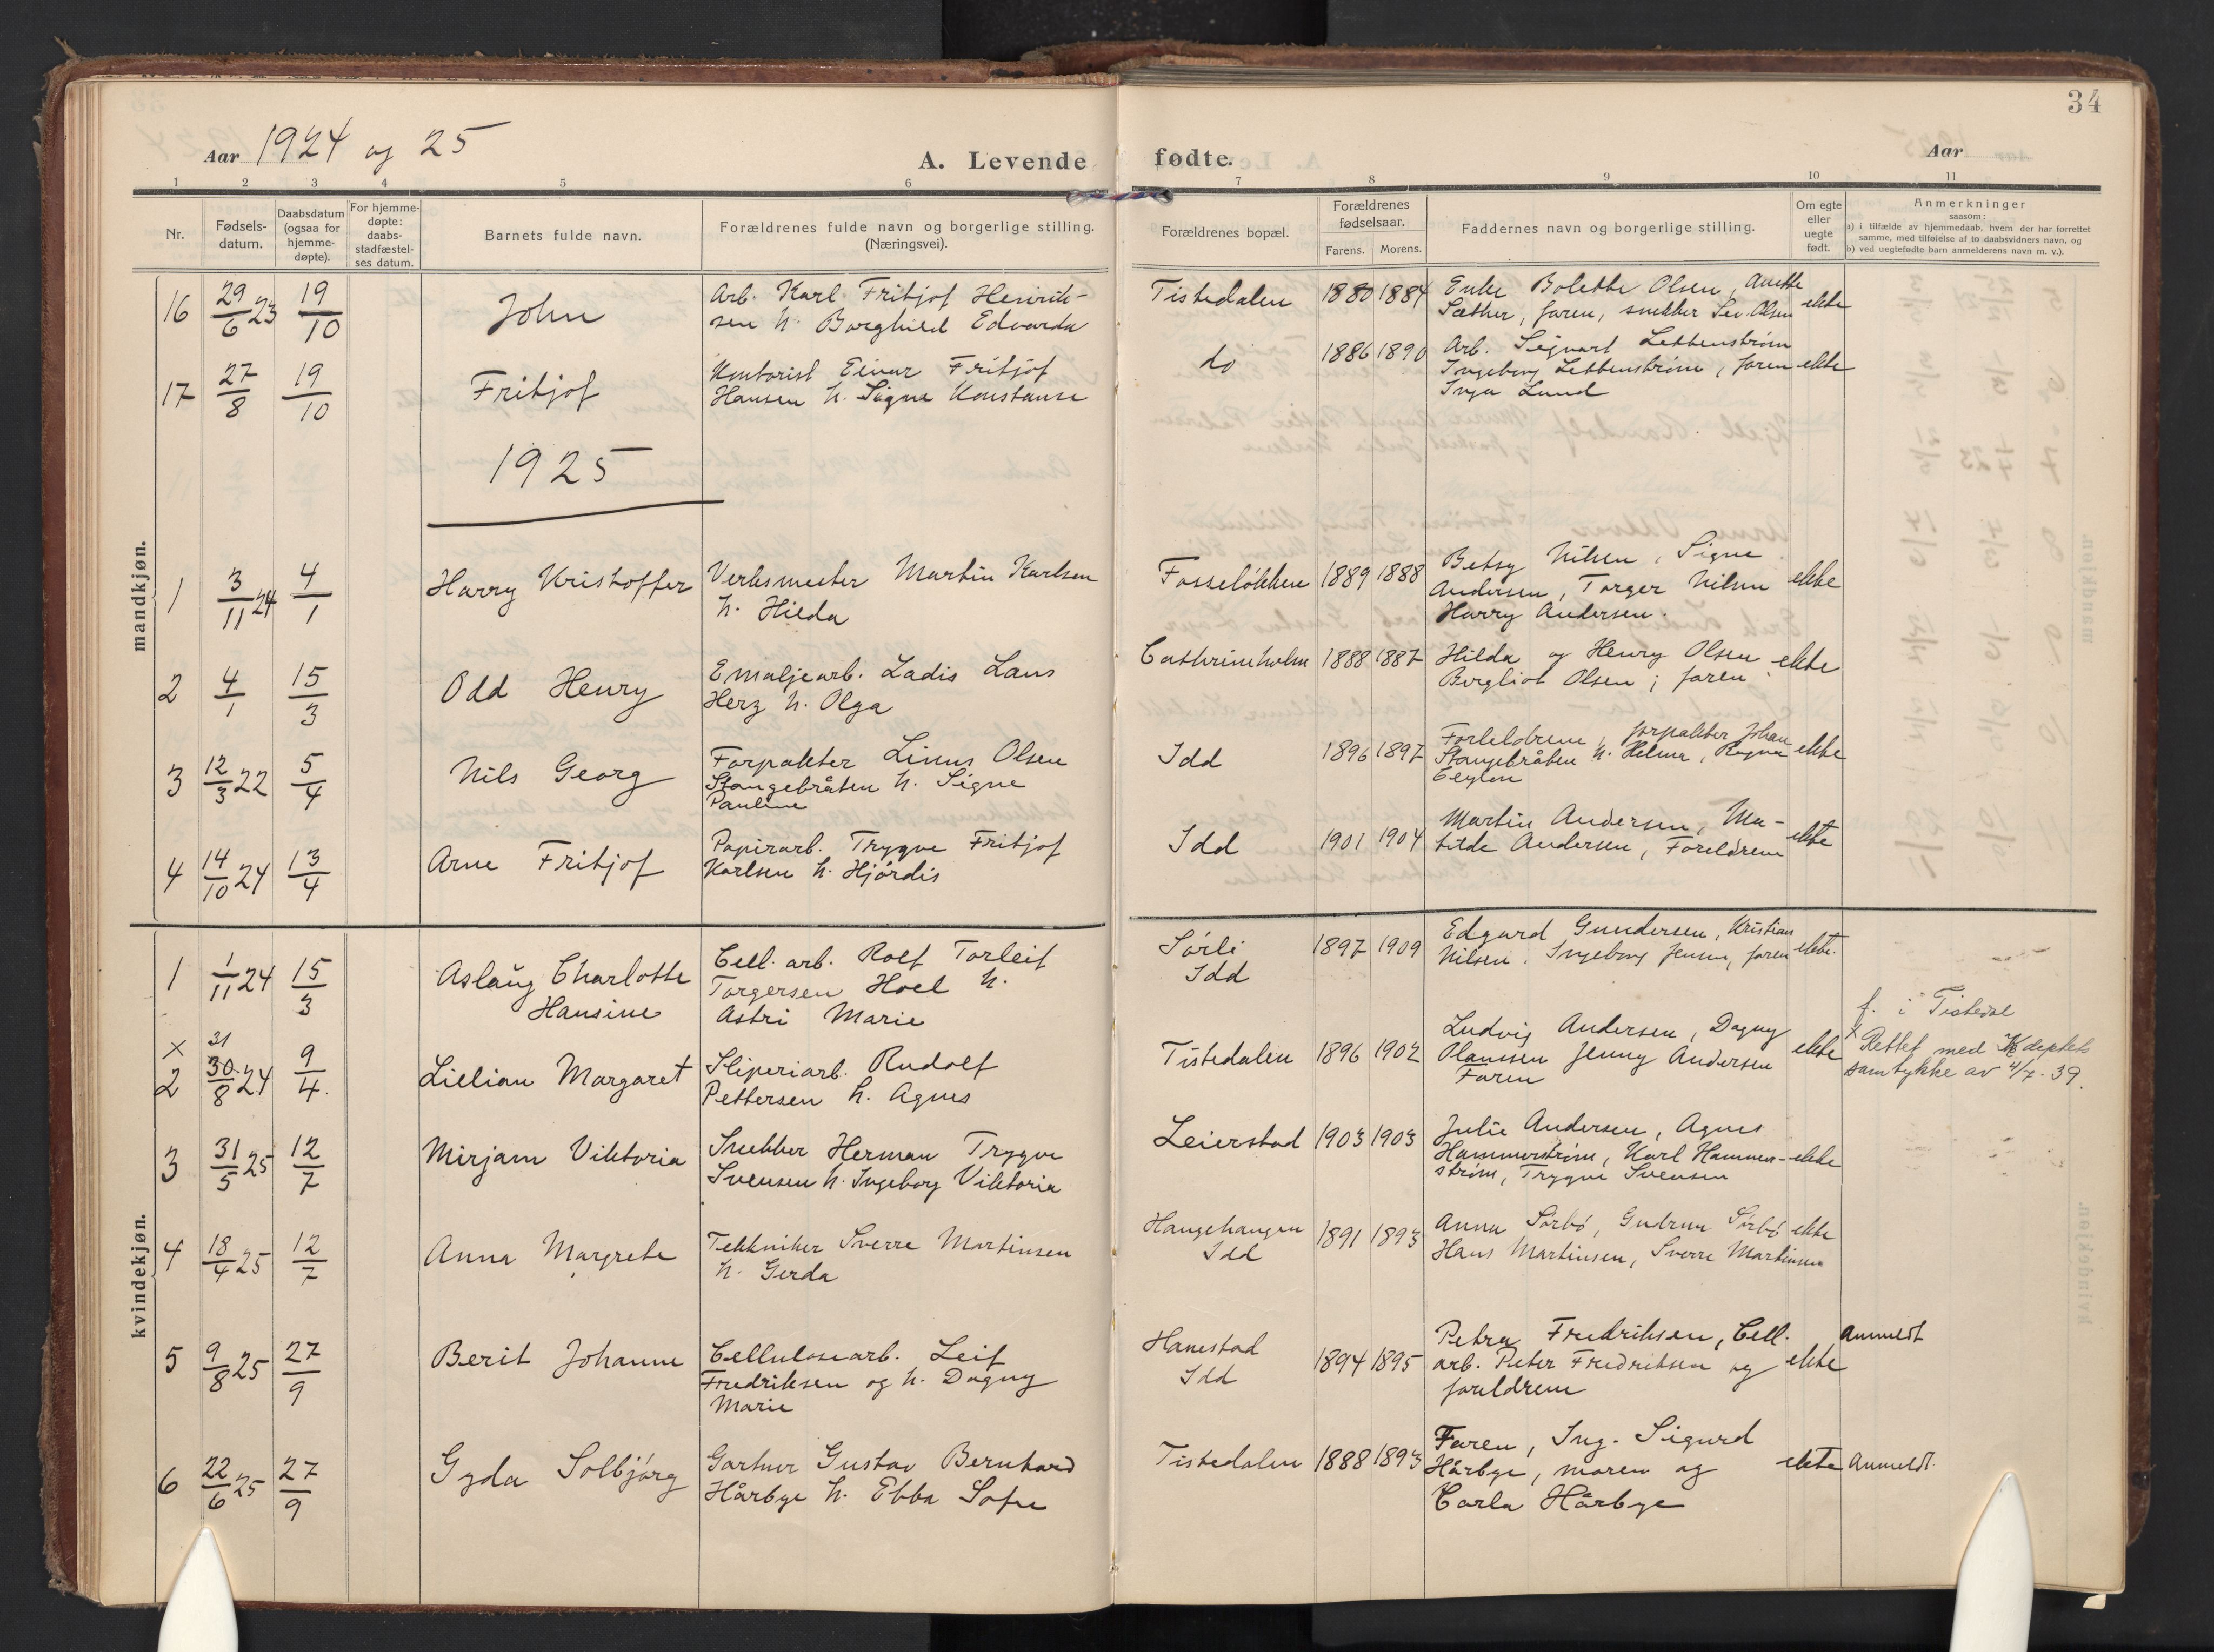 34
Aar 1924 og 25
A. Levende fødte.
Aar
1 2 3 4 5 6 7 8 9 10 11
Nr.
Fødsels-
datum.
Daabsdatum
(ogsaa for
hjemme-
døpte).
For hjemme-
døpte:
daabs-
stadfæstel-
ses datum.
Barnets fulde navn.
Forældrenes fulde navn og borgerlige stilling.
(Næringsvei).
Forældrenes bopæl.
Forældrenes
fødselsaar.
Farens. Morens.
Faddernes navn og borgerlige stilling.
Om egte
eller
uegte
født.
Anmerkninger
saasom:
a) i tilfælde av hjemmedaab, hvem der har forrettet
samme, med tilføielse af to daabsvidners navn, og
b) ved uegtefødte barn anmelderens navn m. v.).
mandkjøn.
16 29/6 23 19/10 John
Arb. Karl Fritjof Henrik-
sen h. Borghild Edvarda
Tistedalen 1880 1884
Enke Bolette Olsen, Anette
Sæther, faren, snekker Sev. Olsen ekte
17 27/8 19/10 Fritjof
Kontorist Einar Fritjof
Hansen h. Signe Konstanse
do 1886 1890
Arb. Sigvart Lettenstrøm
Ingeborg Lettenstrøm, faren ekte
Inga Lund
1925
1 3/11 24 4/1 Harry Kristoffer
Verksmester Martin Karlsen
h. Hilda
Fosseløkken 1889 1888
Betsy Nilsen, Signe
Andersen, Torger Nilsen ekte
Harry Andersen.
2 4/1 15/3 Odd Henry
Emaljearb. Ladis Laus
Herz h. Olga
Cathrineholm 1888 1887
Hilda og Henry Olsen ekte
Bergliot Olsen; faren
3 12/3 22 5/4 Nils Georg
Forpakter Linus Olsen
Stangebråten h. Signe
Pauline
Idd 1896 1897
Foreldrene, forpakter Johan
Stangebråten h. Helma, Ragna ekte
4 14/10 24 13/4 Arne Fritjof
Papirarb. Trygve Fritjof
Karlsen h. Hjørdis
Idd 1901 1904
Martin Andersen, Ma-
tilde Andersen, Foreldrene ekte
kvindekjøn.
1 1/11 24 15/3 Aslaug Charlotte
Hansine
Cell. arb. Rolf Torleif
Torgersen Hoel h.
Astri Marie
Sørli
Idd
1897 1909
Edgard Gundersen, Kristian
Nilsen, Ingeborg Jensen, faren ekte.
x 31
2 30/8 24 9/4. Lillian Margaret
Sliperiarb. Rudolf
Pettersen h. Agnes
Tistedalen 1896 1902
Ludvig Andersen, Dagny
Olaussen Jenny Andersen ekte
Faren
f. i Tistedal
x Rettet med K deptets
samtykke av 4/7. 39.
3 31/5 25 12/7 Mirjam Viktoria
Snekker Herman Trygve
Svensen h. Ingeborg Viktoria
Leierstad 1903 1903
Julie Andersen, Agnes
Hammerstrøm, Karl Hammer- ekte
strøm, Trygve Svensen
4 18/4 25 12/7 Anna Margrete
Tekkniker Sverre Martinsen
h. Gerda
Haugehaugen
Idd
1891 1893
Anna Sørbø, Gudrun Sørbø ekte
Hans Martinsen, Sverre Martinsen
5 9/8 25 27/9 Berit Johanne
Cellulosearb. Leif
Fredriksen og h. Dagny
Marie
Hanestad
Idd
1894 1895
Petra Fredriksen, Cell.
arb. Peter Fredriksen og ekte
foreldrene
Anmeldt
6 22/6 25 27/9 Gyda Solbjørg
Gartner Gustav Bernhard
Hårbye h. Ebba Sofie
Tistedalen 1888 1893
Faren, Ing. Sigurd
Hårbye, moren og ekte
Carla Hårbye
Anmeldt.